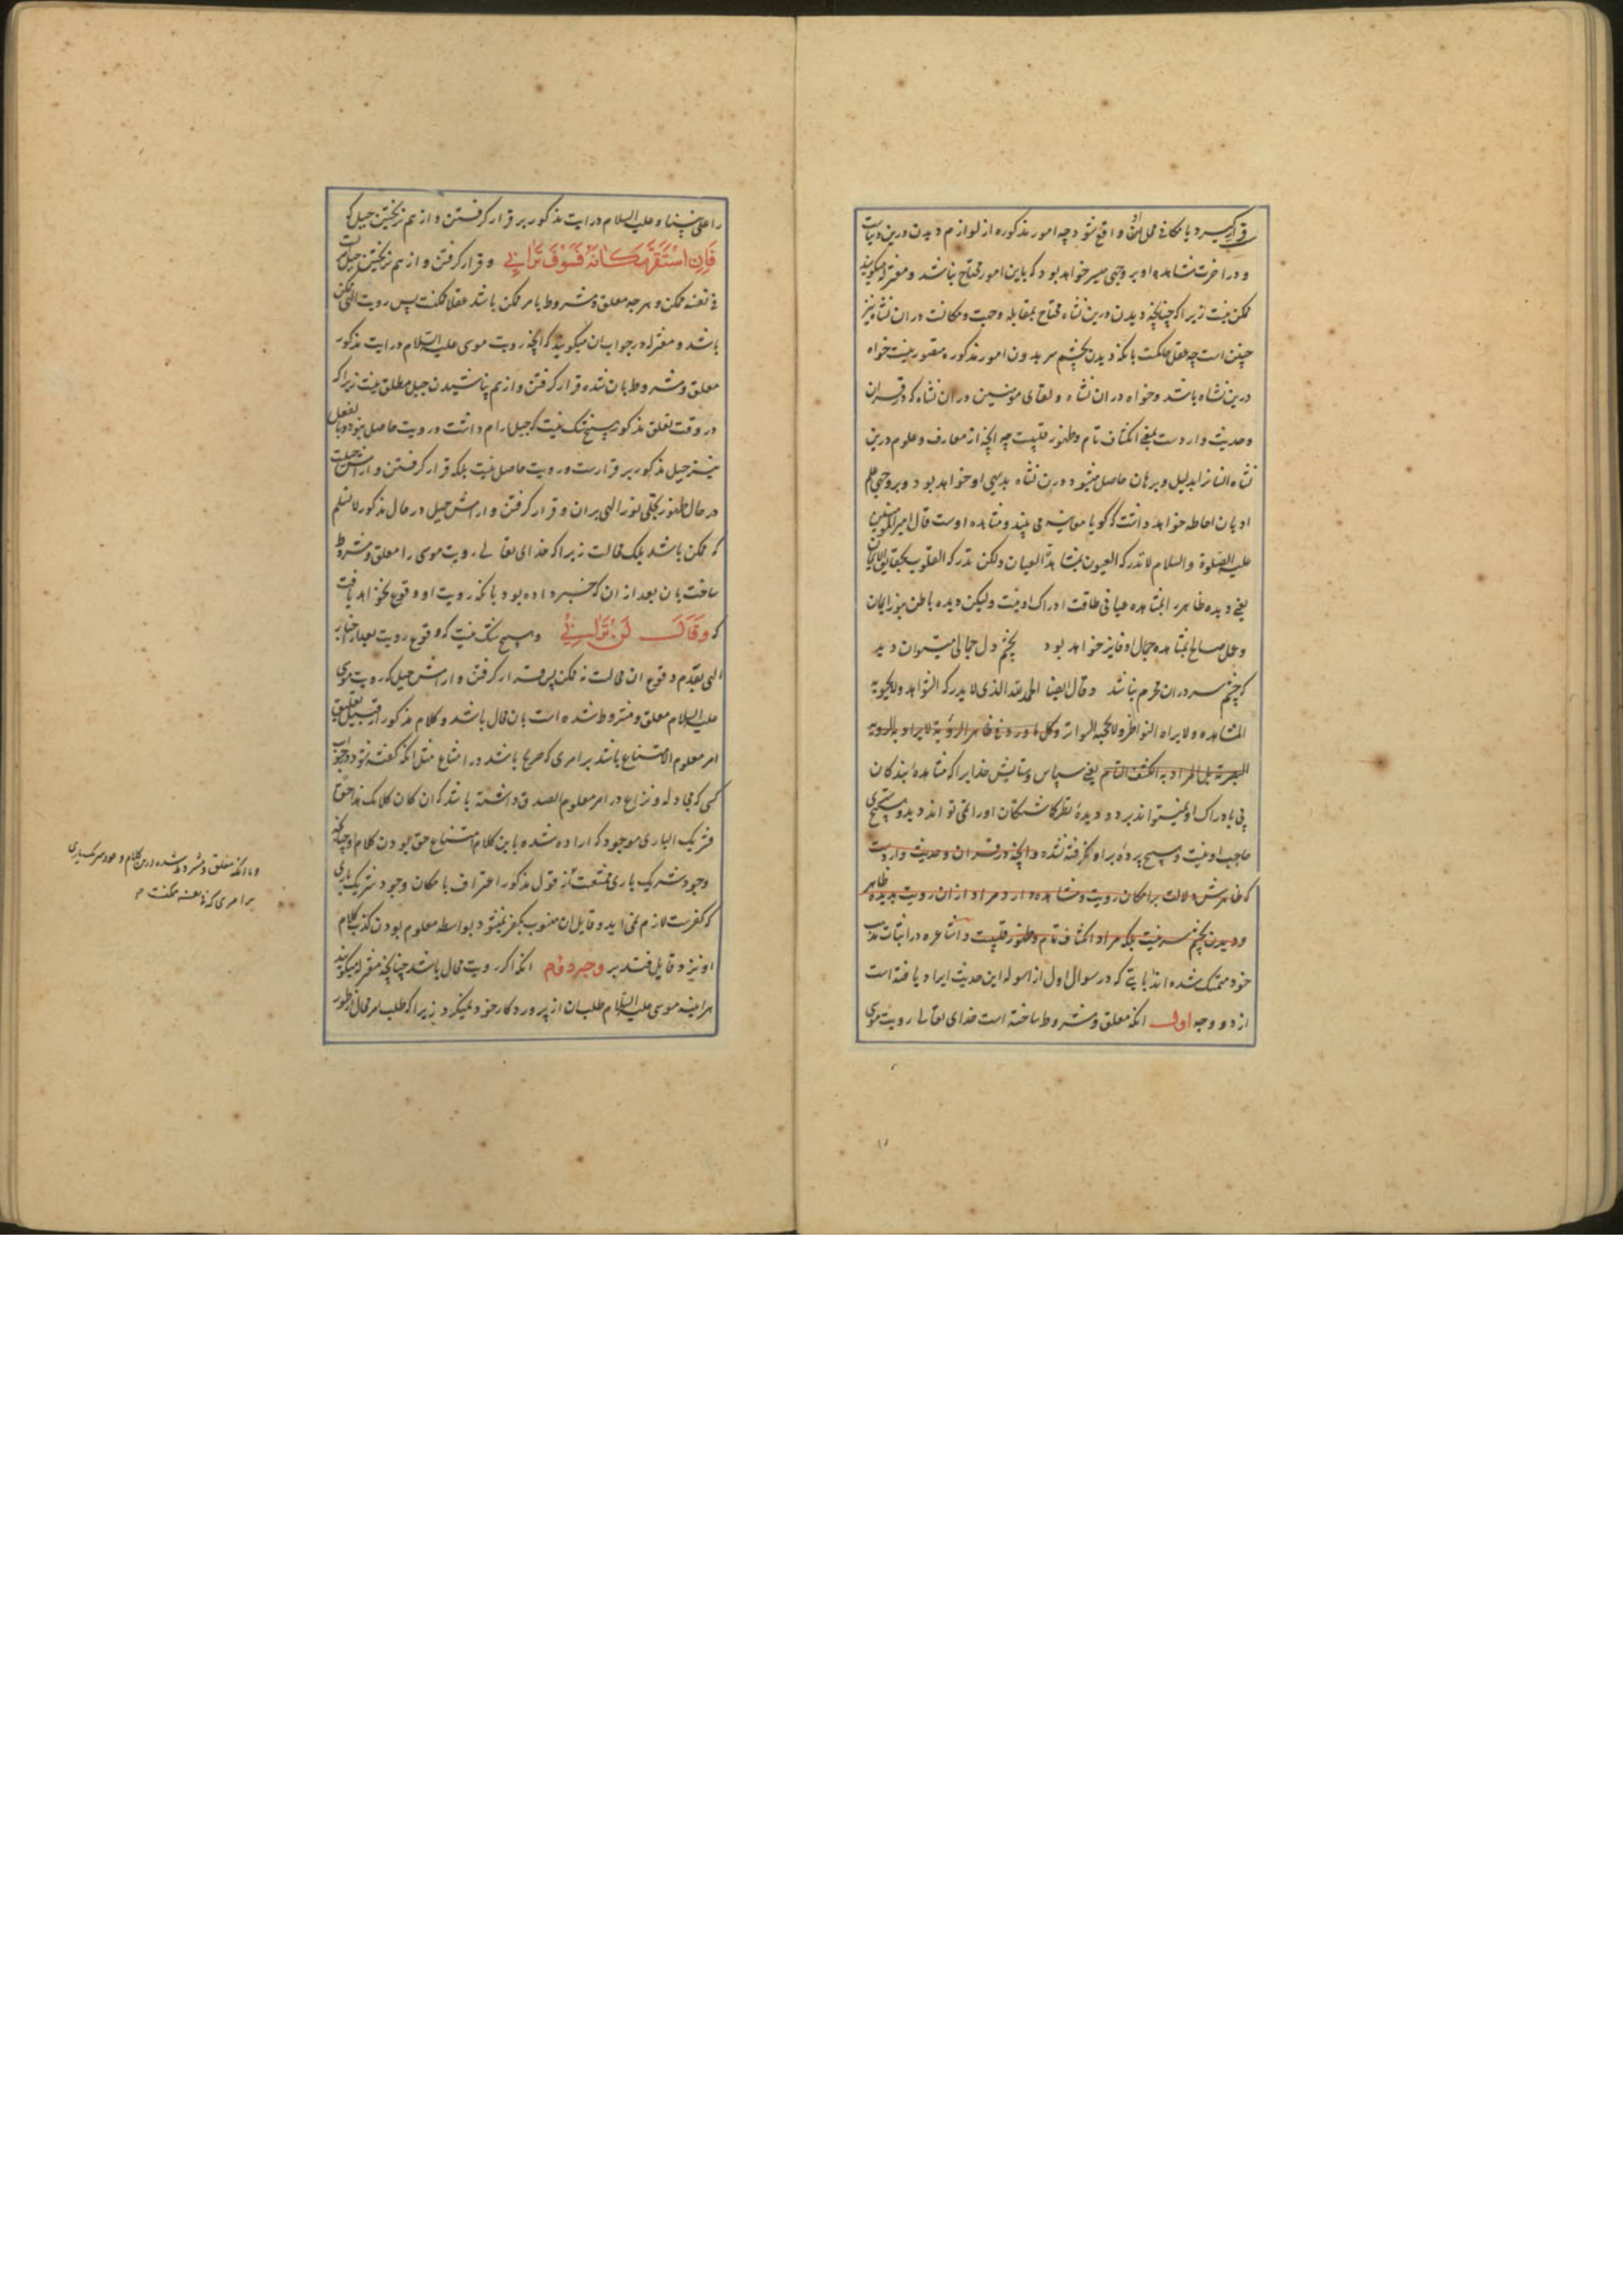 قرار گیرد یا مکانی محل او واقع شود چه امور مذکوره از لوازم دیدن درین دنیاست
و در اخرت مشاهده او بر وجهی میسر خواهد بود که باین امور محتاج نباشد و معتزله میکویند
ممکن نیست زیرا که چنانچه دیدن درین نشاه محتاج بمقابله و جهت و مکانست در ان نشاه نیز
چنین است چه عقل حاکمست بانکه دیدن بچشم سر بدون امور مذکوره متصور نیست خواه
درین نشاه باشد و خواه در ان نشاه و لقای مؤمنین در ان نشاه که در قران
و حدیث واردست بمعنی انکشاف تام و ظهور قلبیست چه انچه از معارف و علوم درین
نشاه انسانرا بدلیل و برهان حاصل میشود در ان نشاه بدیهی او خواهد بود و بر وجهی علم
او بان احاطه خواهد داشت که کویا معاینه می بیند و مشاهده اوست قال امیر المؤمنین
علیه الصلوة و السلام لا تدرکه العیون بمشاهدة العیان ولکن تدرکه القلوب بحقایق الایمان
یعنی دیده ظاهر را بمشاهده عیانی طاقت ادراک او نیست ولیکن دیده باطن بنور ایمان
و عمل صالح بمشاهده جمال او فایز خواهد بود بچشم دل جمالی میتوان دید
که چشم سر در ان محرم نباشد و قال ایضا الحمد لله الذی لا یدرکه الشواهد ولا یحویه
المشاهده ولا یراه النواظر ولا یحجبه السواتر و کل ما ورد فی ظاهر الرؤیة لا یراد به الرویة
البصریة بل المراد به الکشف التام یعنی سپاس و ستایش خدایرا که مشاهده بندکان
پی بادراک او نمیتواند برد و دیده نظرکاشتکان او را نمی تواند دید و هیچ
حاجب او نیست و هیچ پرده بر او نکرفته نشده و انچه در قران و حدیث واردست
که ظاهرش دلالت بر امکان رویت و مشاهده دارد مراد از ان رویت بدیده ظاهر
و دیدن بچشم سر نیست بلکه مراد انکشاف تام و ظهور قلبیست و اشاعره در اثبات مذهب
خود متمسک شده اند بایتی که در سوال اول از اسوله این حدیث ایراد یافته است
از دو وجه اول انکه معلق و مشروط ساخته است خدای تعالی رویت موسی
را علی نبینا و علیه السلام در ایت مذکور بر قرار کرفتن و از هم نریختن جبل که
فَاِنِ اسْتَقَرَّ مَکَانَهُ فَسَوْفَ تَرَانِی و قرار کرفتن و از هم نریختن جبل
فی نفسه ممکن و هر چه معلق و مشروط بامر ممکن باشد عقلا ممکنست پس رویت الهی ممکن
باشد و معتزله در جواب ان میکویند که انچه رویت موسی علیه السلام در ایت مذکور
معلق و مشروط بان شده قرار کرفتن و از هم نپاشیدن جبل مطلق نیست زیرا که
در وقت تعلق مذکور هیچ شک نیست که جبل ارام داشت و رویت حاصل نبود و بالفعل
نیز جبل مذکور بر قرارست و رویت حاصل نیست بلکه قرار کرفتن و ارامش جبلست
در حال ظهور تجلی نور الهی بران و قرار کرفتن و ارامش جبل در حال مذکور لا نسلم
که ممکن باشد بلکه محالست زیرا که خدای تعالی رویت موسی را معلق و مشروط
ساخت بان بعد از ان که خبر داده بود بانکه رویت او وقوع نخواهد یافت
که وَقَالَ لَنْ تَرَانِی و هیچ شک نیست که وقوع رویت بعد از اخبار
الهی بعدم وقوع ان محالست نه ممکن پس قرار کرفتن و ارامش جبل که رویت موسی
علیه السلام معلق و مشروط شده است بان محال باشد و کلام مذکور از قبیل تعلیق
امر معلوم الامتناع باشد بر امری که صریحا باشد در امتناع مثل انکه کفته شود در جواب
کسی که مجادله و نزاع در امر معلوم الصدق داشته باشد که ان کان کلامک هذا حقا
فشریک الباری موجود که اراده شده باین کلام امتناع حق بودن کلام او چنانچه
وجود شریک باری ممتنعست از قول مذکور اعتراف بامکان وجود شریک باری
که کفرست لازم نمی اید و قایل ان منسوب بکفر نمیشود بواسطه معلوم بودن کذب کلام
او نیز و قایل فتدبر وجه دوم انکه اکر رویت محال باشد چنانچه معتزله میکویند
هر اینه موسی علیه السلام طلب ان از پروردکار خود نمیکرد زیرا که طلب امر محال از طور
و با انکه معلق و مشروط شده درین کلام وجود شریک باری
بر امری که فی نفسه ممکنست